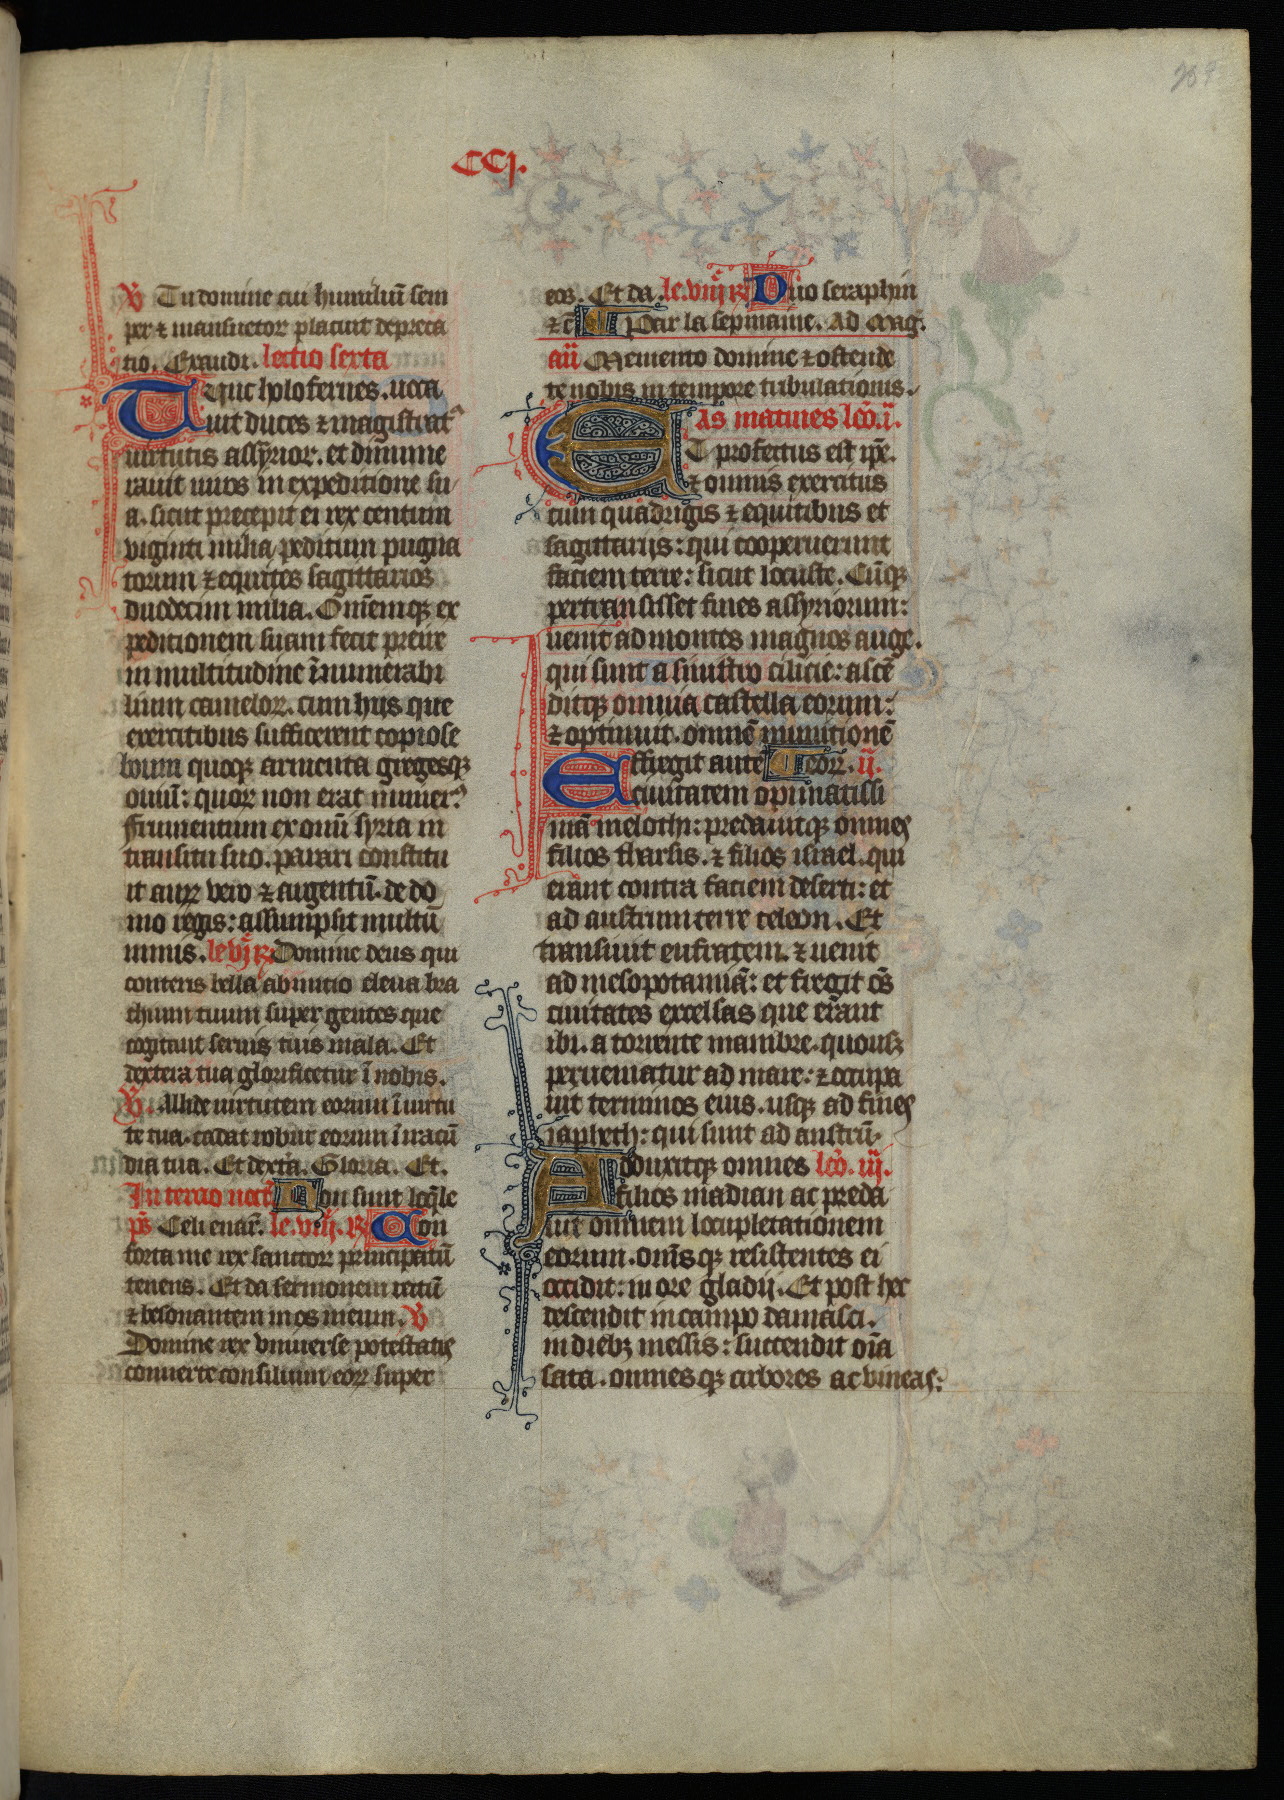 207
CCj.
℣ Tu domine cui humiliū sem
per ⁊ mansuetoꝝ placuit depreca
tio. Exaudi. lectio sexta
Tunc holofernes. uoca
uit duces ⁊ magistratꝰ
uirtutis assyrioꝝ. et dinume
rauit uiros in expeditione su
a. sicut precepit ei rex centum
viginti milia peditum pugna
torum ⁊ equites sagittarios
duodecim milia. Omnēmqꝫ ex
peditionem suam fecit preire
in multitudine īnumerabi
lium cameloꝝ. cum hijs que
exercitibus sufficerent copiose
boum quoqꝫ armenta gregesqꝫ
ouiū: quoꝝ non erat numerꝰ.
Frumentum ex omi syria in
transitu suo. parari constitu
it auꝝ vero ⁊ argentū. de do
mo regis: assumpsit multū
nimis. le vj ℟ Domine deus qui
conteris bella ab initio eleua bra
chium tuum super gentes que
cogitant seruis tuis mala. Et
dextera tua glorificetur ī nobis.
℣. Allide uirtutem eorum ī uirtu
te tua. cadat robur eorum ī iracū
dia tua. Et dext̄a. Gloria. Et.
In tercio noct̄ Non sunt loq̄le
p̄s Celi enar̄. le. vij. ℟ Con
forta me rex sanctoꝝ principatū
tenens. Et da sermonem rectū
⁊ besonantem in os meum. ℣
Domine rex vniuerse potestatis
conuerte consilium eoꝝ super
eos. Et da. le. viij ℟ Duo seraphin
⁊c̄ Par la sepmaine. Ad maḡ.
aū Memento domine ⁊ ostende
te nobis in tempore tribulationis.
As matines lcō. i.
Et profectus est ip̄e.
⁊ omnis exercitus
cum quadrigis ⁊ equitibus et
sagittarijs: qui cooperuerunt
faciem terre: sicut locuste. Cūqꝫ
pertransisset fines assyriorum:
uenit ad montes magnos auge.
qui sunt a sinistro cilicie: ascē
ditqꝫ omnia castella eorum:
⁊ optinuit. omnē munitionē
Effregit autē eoꝝ. ij.
ciuitatem opinatissi
mā melothi: predauitqꝫ omnes
filios tharsis. ⁊ filios israel. qui
erant contra faciem deserti: et
ad austrum terre celeon. Et
transiuit eufratem. ⁊ uenit
ad mesopotamiā: et fregit oēs
ciuitates excelsas que erant
ibi. a torrente mambre. quousqꝫ
perueniatur ad mare: ⁊ occupa
uit terminos eius. usqꝫ ad fines
iapheth: qui sunt ad austrū.
Adduxitqꝫ omnes lcō. iij.
filios madian ac preda
tur omnem locupletationem
eorum. om̄s qꝫ resistentes ei
occidit: in ore gladij. Et post hec
descendit in campo damasci.
in diebꝫ messis: succendit oīa
sata. omnes qꝫ arbores ac vineas: